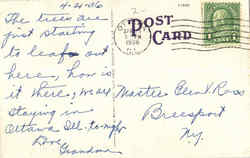 4-24-36
The trees are
just starting
to leaf out
here, how is
it there; we are
staying in
Ottawa Ill. to-night
Love
Grandma
POST
CARD
1936
Ross
Breesport
N.Y.